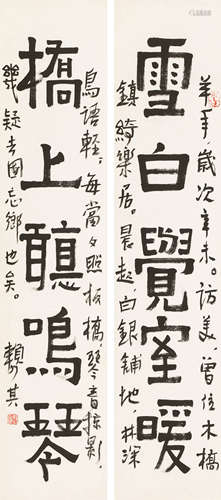 羊年歲次辛未。訪美。曾住木橋
雪白覺室暖
鎮綺樂居。晨起白銀舖地，井深
鳥語輕。每當夕照板橋，琴音掠影，
橋上聽鳴琴
幾疑去國忘鄉也矣。賴其